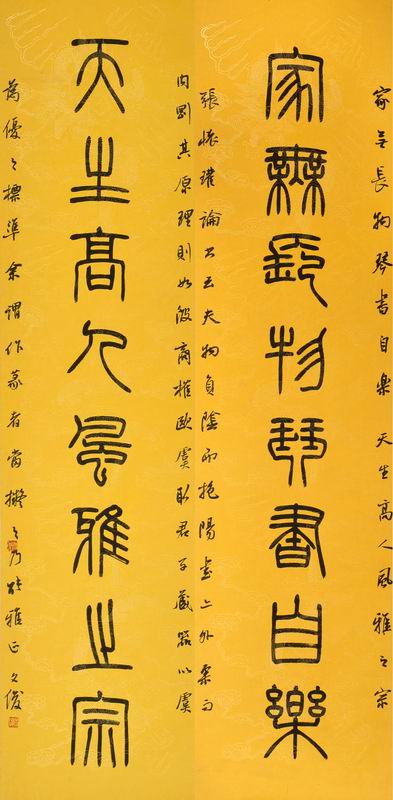 家無長物琴書自樂 天生高人風雅之宗
家無長物琴書自樂
張懷瓘論云夫物負陰而抱陽書外柔而
内剛其原理則如彼商榷歐虞君子藏器以虞
天生高人風雅之宗
為優之標準余謂作篆者當擬之乃雅正文俊